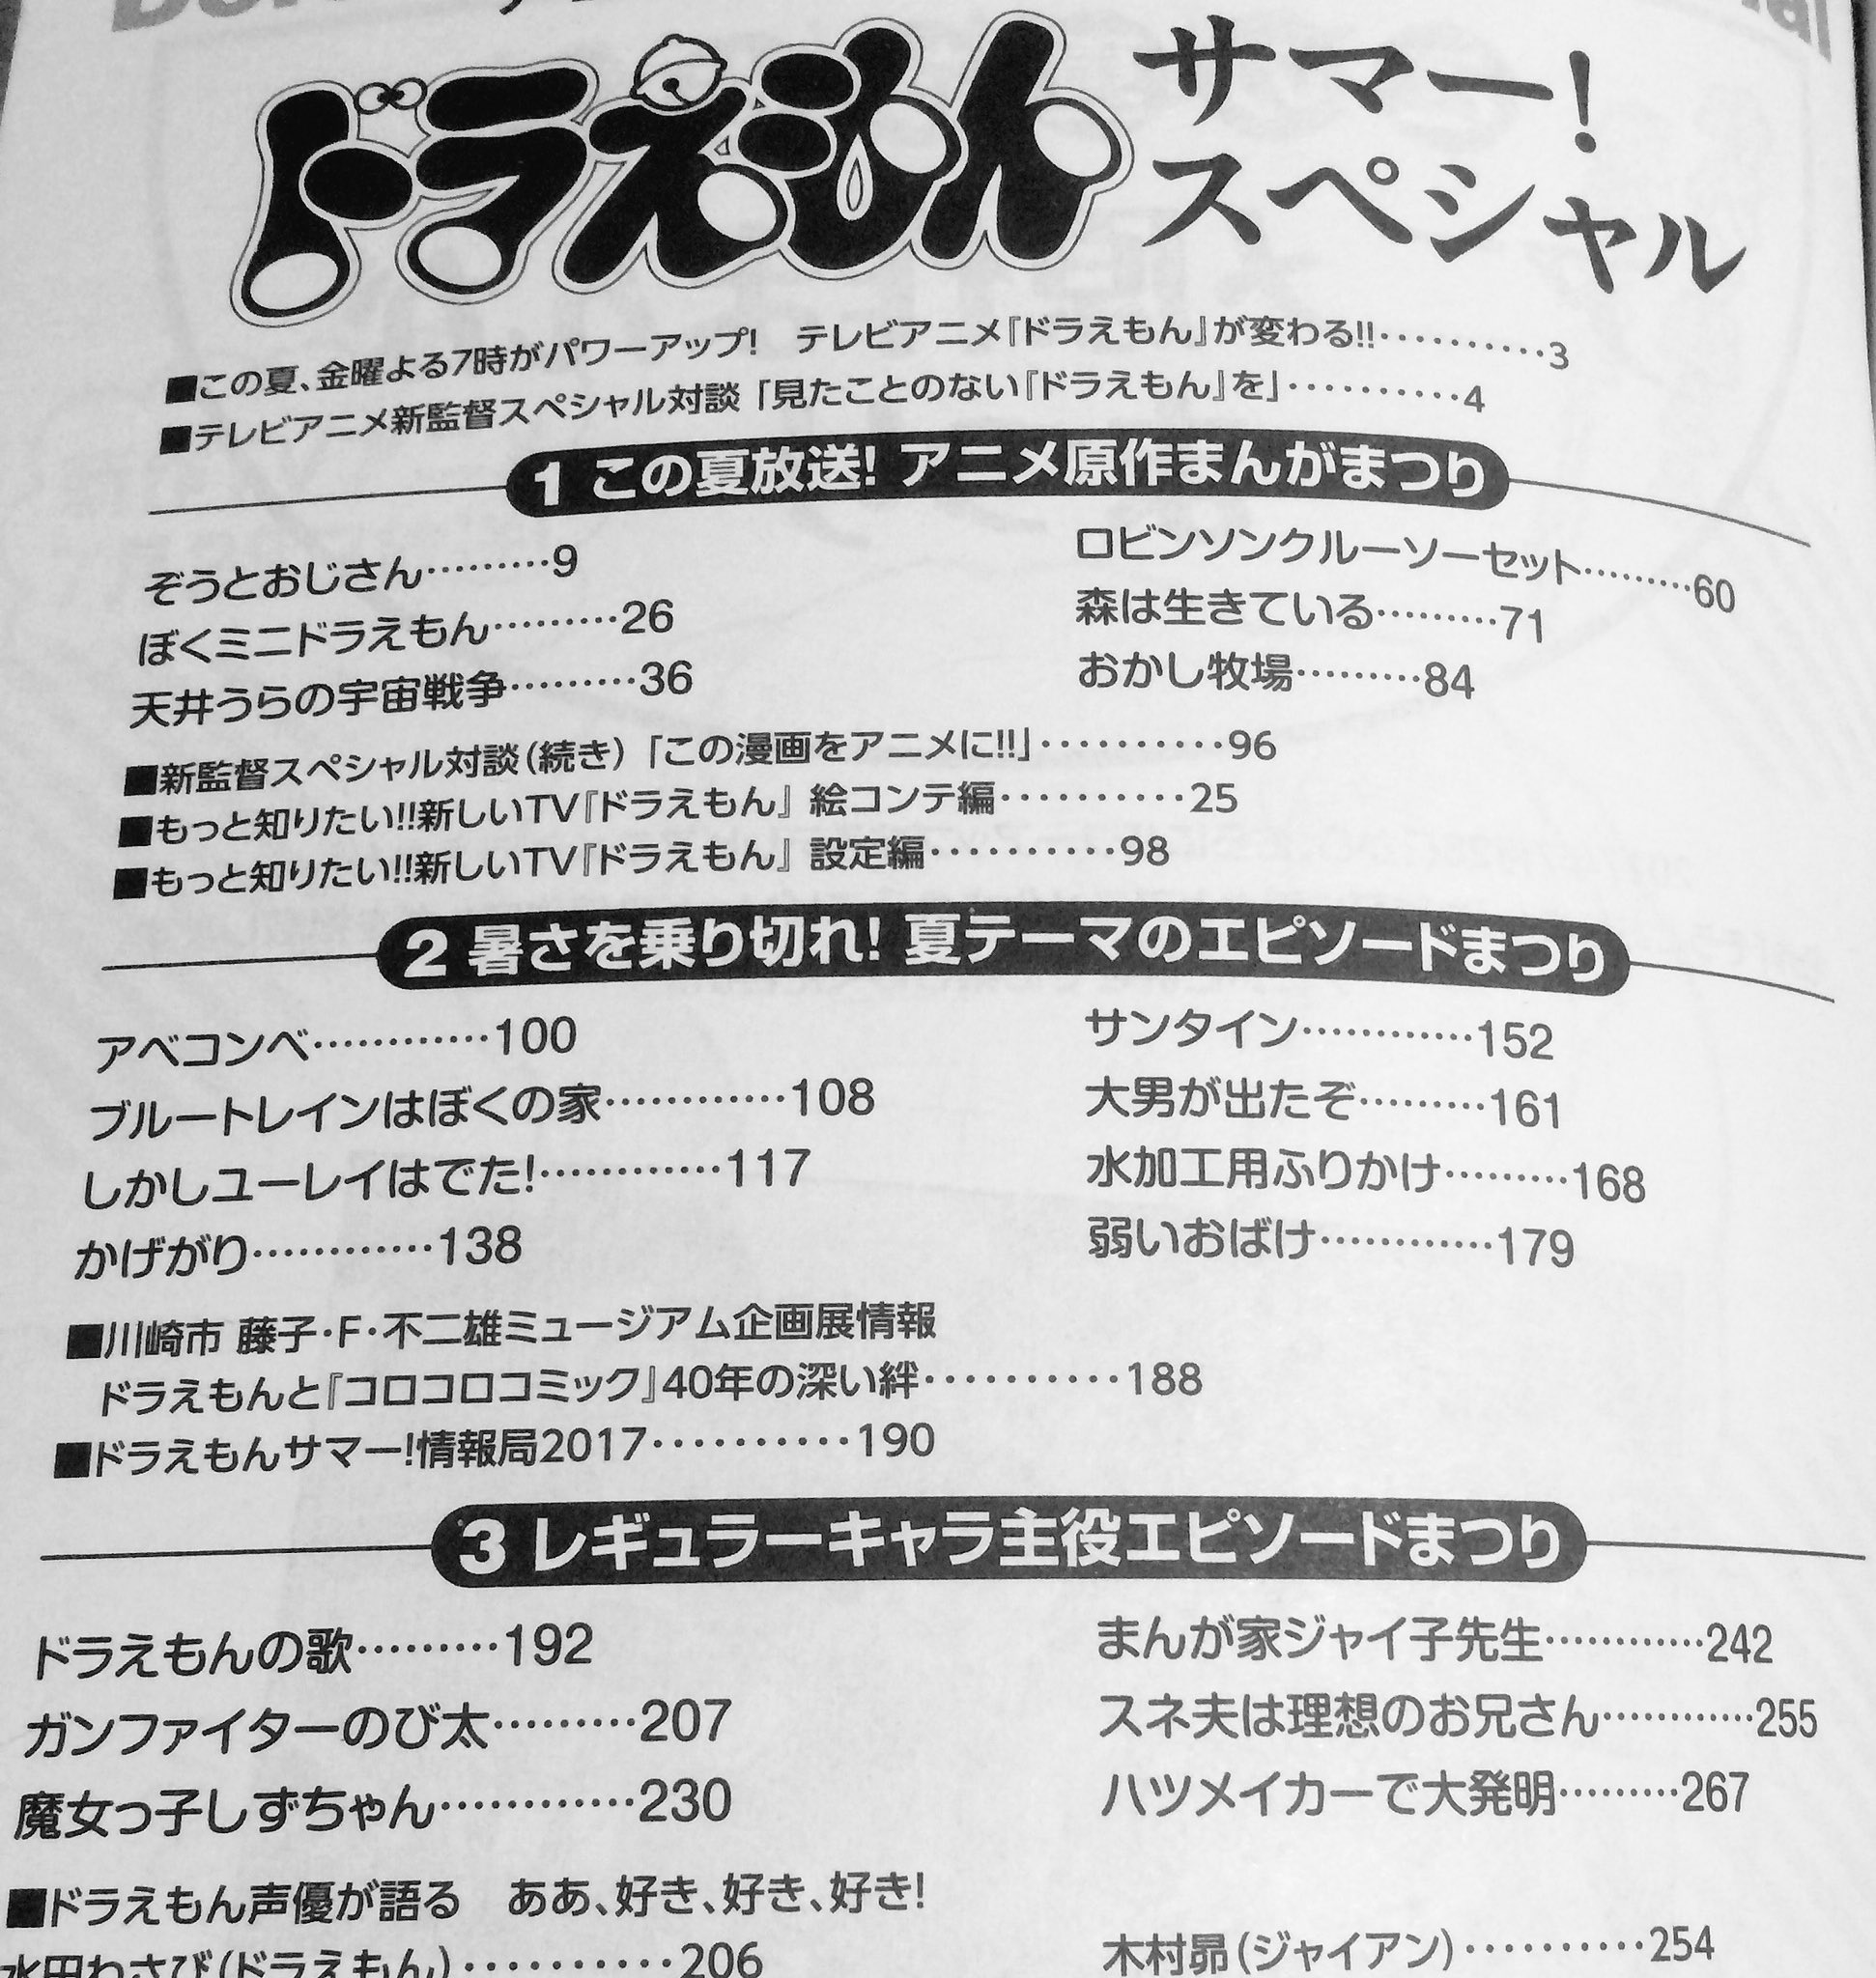 ドラえもん サマー!
スペシャル
■この夏、金曜よる7時がパワーアップ! テレビアニメ『ドラえもん』が変わる!!‥‥‥‥‥3
■テレビアニメ新監督スペシャル対談「見たことのない『ドラえもん』を」‥‥‥‥‥4
1 この夏放送! アニメ原作まんがまつり
ぞうとおじさん………9
ぼくミニドラえもん………26
天井うらの宇宙戦争………36
ロビンソンクルーソーセット………60
森は生きている………71
おかし牧場………84
■新監督スペシャル対談(続き)「この漫画をアニメに!!」‥‥‥‥‥96
■もっと知りたい!!新しいTV『ドラえもん』 絵コンテ編‥‥‥‥‥25
■もっと知りたい!!新しいTV『ドラえもん』 設定編‥‥‥‥‥98
2 暑さを乗り切れ! 夏テーマのエピソードまつり
アベコンベ…………100
ブルートレインはぼくの家…………108
しかしユーレイはでた!…………117
かげがり…………138
サンタイン…………152
大男が出たぞ………161
水加工用ふりかけ………168
弱いおばけ…………179
■川崎市 藤子・F・不二雄ミュージアム企画展情報
ドラえもんと『コロコロコミック』40年の深い絆‥‥‥‥‥188
■ドラえもんサマー!情報局2017‥‥‥‥‥190
3 レギュラーキャラ主役エピソードまつり
ドラえもんの歌………192
ガンファイターのび太………207
魔女っ子しずちゃん…………230
まんが家ジャイ子先生…………242
スネ夫は理想のお兄さん…………255
ハツメイカーで大発明………267
■ドラえもん声優が語る ああ、好き、好き、好き!
水田わさび(ドラえもん)‥‥‥‥‥206
木村昴(ジャイアン)‥‥‥‥‥254